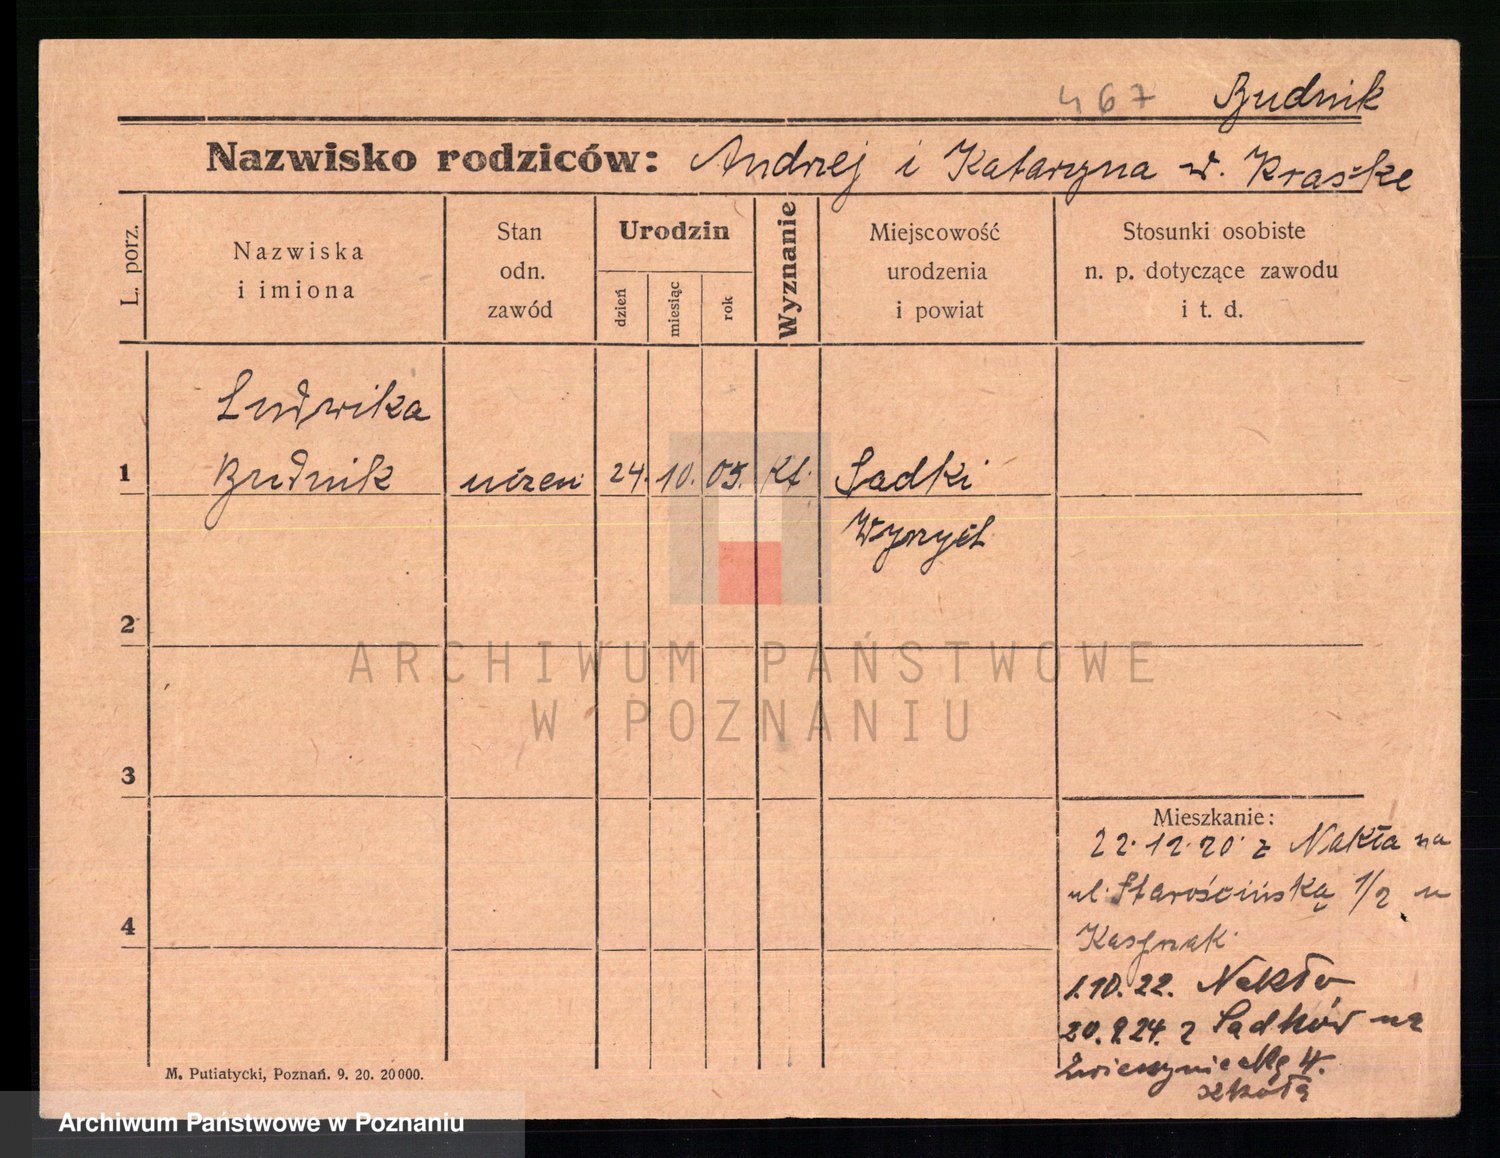 467 Budnik
Nazwisko rodziców: Andrzej i Katarzyna w. Kraśke
L. porz.
Nazwiska
i imiona
Stan
odn.
zawód
Urodzin
dzień
miesiąc
rok
Wyznanie
Miejscowość
urodzenia
i powiat
Stosunki osobiste
n. p. dotyczące zawodu
i t. d.
Ludwika
1 Budnik uczen 24. 10. 05. Kt. Sadki
Wyrzysk
2
3
4
Mieszkanie:
22.12.20 z Nakła na
ul. Starościńską 1/2 u
Kasprzak
1.10.22. Nakło
20.9.24. z Sadków na
Zwierzyniecką 4.
szkoła
M. Putiatycki, Poznań. 9. 20. 20000.
ARCHIWUM PAŃSTWOWE
W POZNANIU
Archiwum Państwowe w Poznaniu